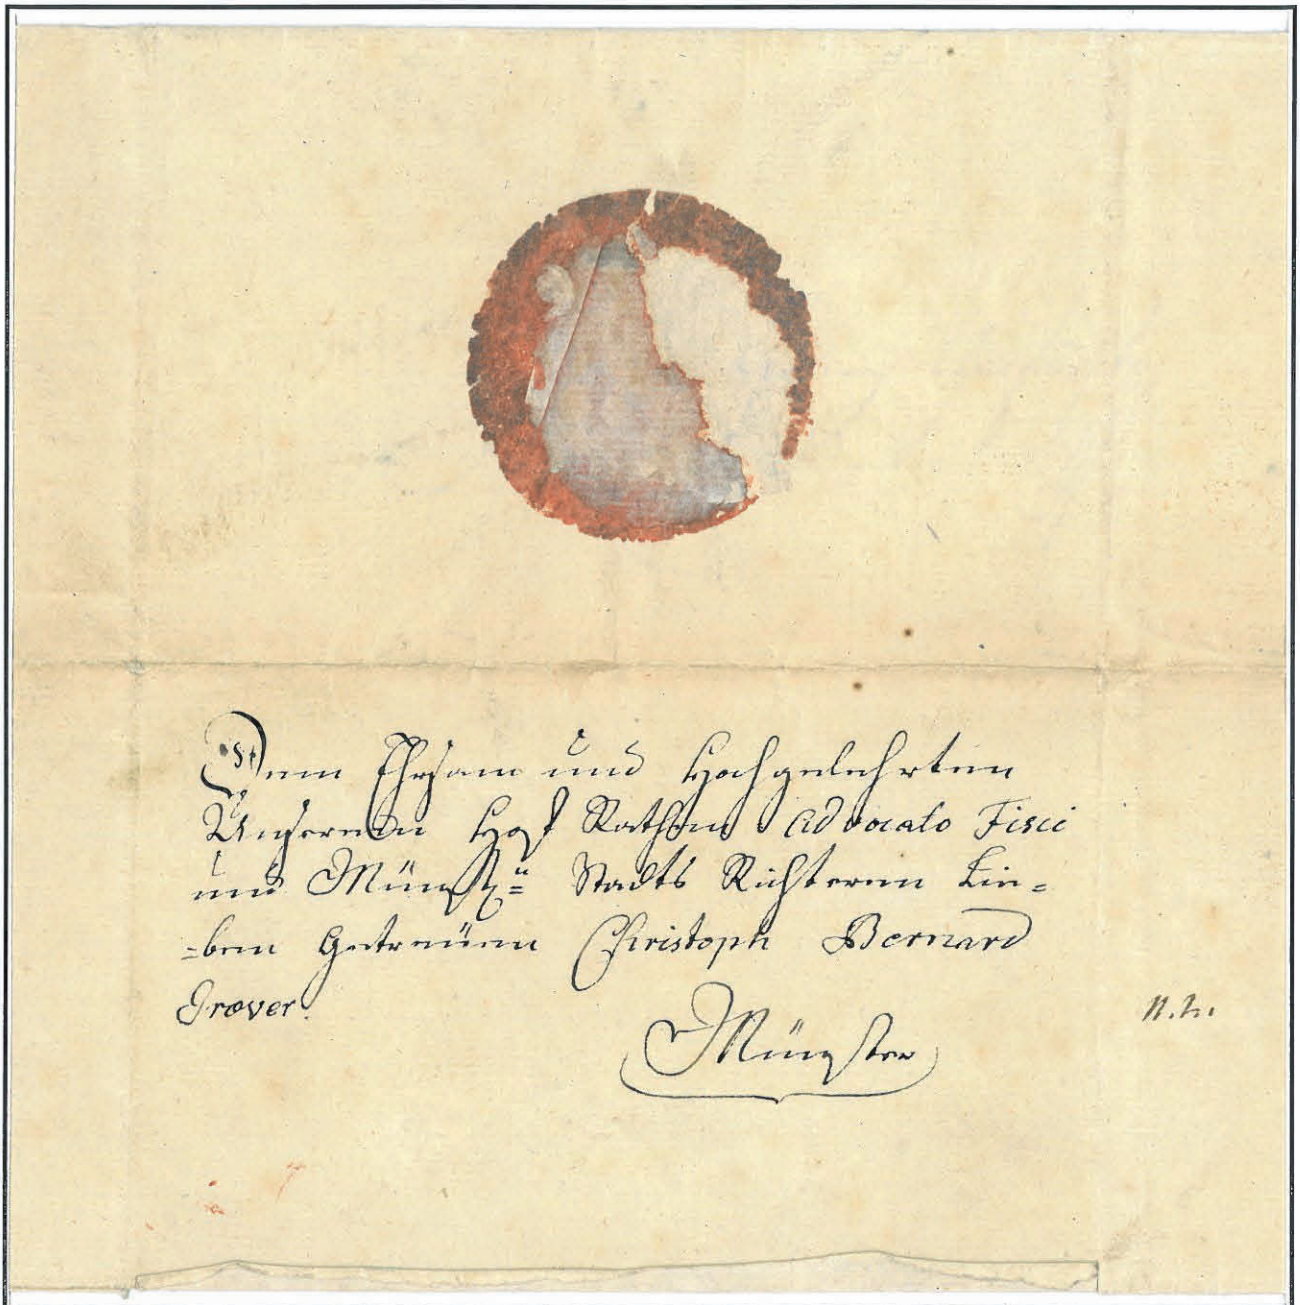 Dem Ehrsam und Hochgelehrten
Unserem Hof Rathen Advocato Fisci
und Münst: Stadts Richteren Lie=
=ben Getreüen Christoph Bernard
Græver.
Münster